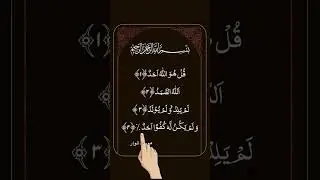 بِسْمِ اللهِ الرَّحْمٰنِ الرَّحِيْمِ
قُلْ هُوَ اللهُ اَحَدٌ ﴿١﴾
اَللهُ الصَّمَدُ ﴿٢﴾
لَمْ يَلِدْ وَلَمْ يُوْلَدْ ﴿٣﴾
وَلَمْ يَكُنْ لَّهٗ كُفُوًا اَحَدٌ ﴿٤﴾